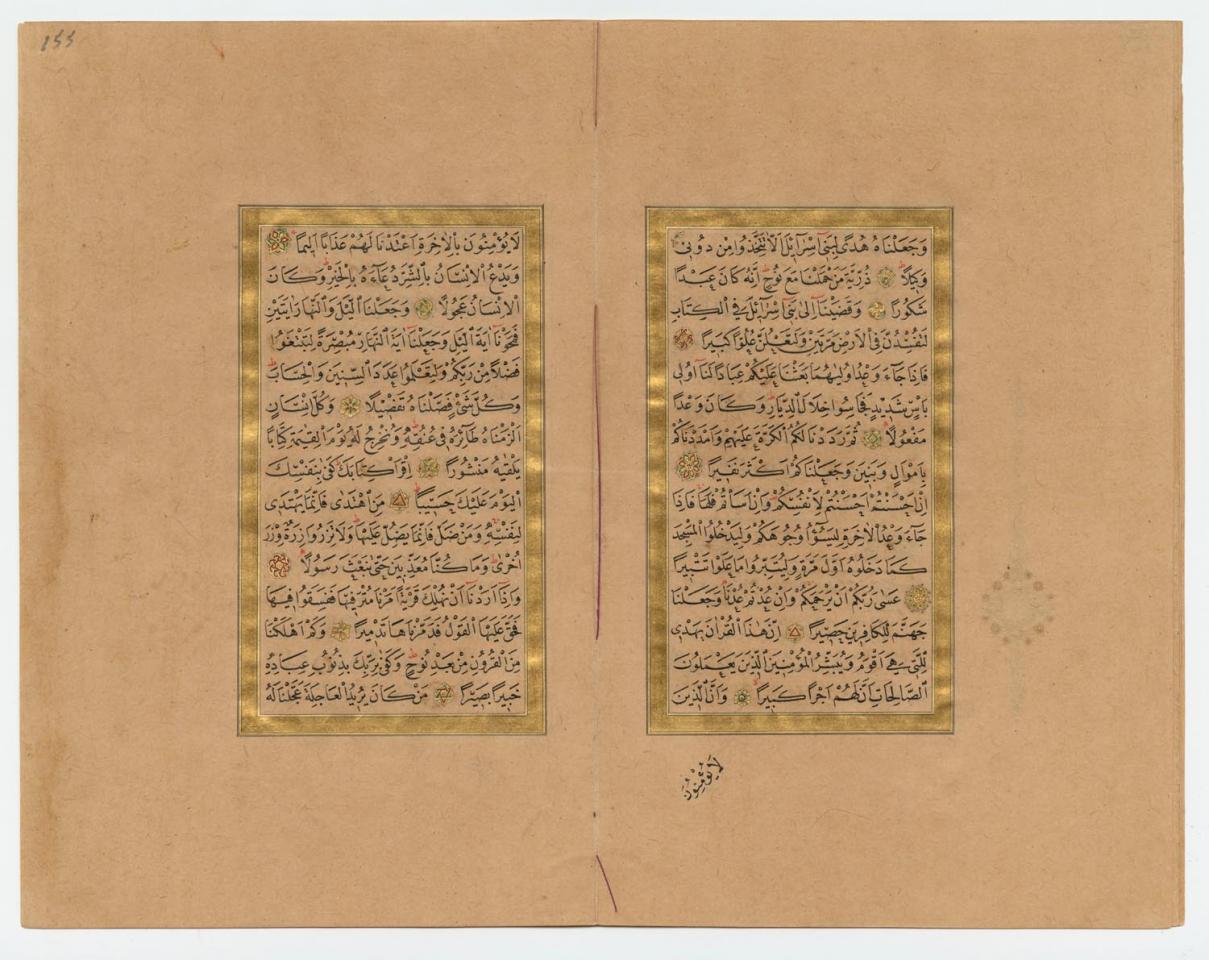 وَجَعَلْنَاهُ هُدًى لِبَنِى اِسْرَآئِلَ اَلَّا تَتَّخِذُوا مِنْ دُونِى
وَكِيلًا ذُرِّيَّةَ مَنْ حَمَلْنَا مَعَ نُوحٍ اِنَّهُ كَانَ عَبْدًا
شَكُورًا وَقَضَيْنَا اِلٰى بَنِى اِسْرَآئِلَ فِى الْكِتَابِ
لَتُفْسِدُنَّ فِى الْاَرْضِ مَرَّتَيْنِ وَلَتَعْلُنَّ عُلُوًّا كَبِيرًا
فَاِذَا جَآءَ وَعْدُ اُولٰيهُمَا بَعَثْنَا عَلَيْكُمْ عِبَادًا لَنَا اُولِى
بَاْسٍ شَدِيدٍ فَجَاسُوا خِلَالَ الدِّيَارِ وَكَانَ وَعْدًا
مَفْعُولًا ثُمَّ رَدَدْنَا لَكُمُ الْكَرَّةَ عَلَيْهِمْ وَاَمْدَدْنَاكُمْ
بِاَمْوَالٍ وَبَنِينَ وَجَعَلْنَاكُمْ اَكْثَرَ نَفِيرًا
اِنْ اَحْسَنْتُمْ اَحْسَنْتُمْ لِاَنْفُسِكُمْ وَاِنْ اَسَاْتُمْ فَلَهَا فَاِذَا
جَآءَ وَعْدُ الْاٰخِرَةِ لِيَسُٓؤُا وُجُوهَكُمْ وَلِيَدْخُلُوا الْمَسْجِدَ
كَمَا دَخَلُوهُ اَوَّلَ مَرَّةٍ وَلِيُتَبِّرُوا مَا عَلَوْا تَتْبِيرًا
عَسٰى رَبُّكُمْ اَنْ يَرْحَمَكُمْ وَاِنْ عُدْتُمْ عُدْنَا وَجَعَلْنَا
جَهَنَّمَ لِلْكَافِرِينَ حَصِيرًا اِنَّ هٰذَا الْقُرْاٰنَ يَهْدِى
لِلَّتِى هِىَ اَقْوَمُ وَيُبَشِّرُ الْمُؤْمِنِينَ الَّذِينَ يَعْمَلُونَ
الصَّالِحَاتِ اَنَّ لَهُمْ اَجْرًا كَبِيرًا وَاَنَّ الَّذِينَ
لَا يُؤْمِنُونَ
١٤٤
لَا يُؤْمِنُونَ بِالْاٰخِرَةِ اَعْتَدْنَا لَهُمْ عَذَابًا اَلِيمًا
وَيَدْعُ الْاِنْسَانُ بِالشَّرِّ دُعَآءَهُ بِالْخَيْرِ وَكَانَ
الْاِنْسَانُ عَجُولًا وَجَعَلْنَا الَّيْلَ وَالنَّهَارَ اٰيَتَيْنِ
فَمَحَوْنَا اٰيَةَ الَّيْلِ وَجَعَلْنَا اٰيَةَ النَّهَارِ مُبْصِرَةً لِتَبْتَغُوا
فَضْلًا مِنْ رَبِّكُمْ وَلِتَعْلَمُوا عَدَدَ السِّنِينَ وَالْحِسَابَ
وَكُلَّ شَىْءٍ فَصَّلْنَاهُ تَفْصِيلًا وَكُلَّ اِنْسَانٍ
اَلْزَمْنَاهُ طَآئِرَهُ فِى عُنُقِهِ وَنُخْرِجُ لَهُ يَوْمَ الْقِيٰمَةِ كِتَابًا
يَلْقٰيهُ مَنْشُورًا اِقْرَاْ كِتَابَكَ كَفٰى بِنَفْسِكَ
الْيَوْمَ عَلَيْكَ حَسِيبًا مَنِ اهْتَدٰى فَاِنَّمَا يَهْتَدِى
لِنَفْسِهِ وَمَنْ ضَلَّ فَاِنَّمَا يَضِلُّ عَلَيْهَا وَلَا تَزِرُ وَازِرَةٌ وِزْرَ
اُخْرٰى وَمَا كُنَّا مُعَذِّبِينَ حَتّٰى نَبْعَثَ رَسُولًا
وَاِذَا اَرَدْنَا اَنْ نُهْلِكَ قَرْيَةً اَمَرْنَا مُتْرَفِيهَا فَفَسَقُوا فِيهَا
فَحَقَّ عَلَيْهَا الْقَوْلُ فَدَمَّرْنَاهَا تَدْمِيرًا وَكَمْ اَهْلَكْنَا
مِنَ الْقُرُونِ مِنْ بَعْدِ نُوحٍ وَكَفٰى بِرَبِّكَ بِذُنُوبِ عِبَادِهِ
خَبِيرًا بَصِيرًا مَنْ كَانَ يُرِيدُ الْعَاجِلَةَ عَجَّلْنَا لَهُ